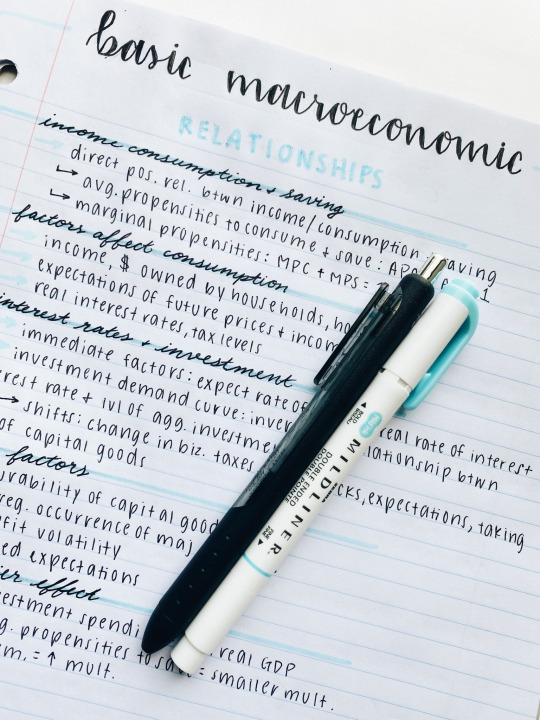 basic macroeconomic
RELATIONSHIPS
income consumption + saving
direct pos. rel. btwn income/consumption + saving
↳ avg. propensities to consume + save: APC
↳ marginal propensities: MPC + MPS = 1
factors affect consumption
income, $ owned by households,
expectations of future prices + income
real interest rates, tax levels
interest rates + investment
immediate factors: expect rate of real rate of interest
investment demand curve: relationship btwn
rest rate + lvl of agg. investment
↳ shifts: change in biz. taxes expectations, taking
of capital goods
factors
durability of capital goods
reg. occurrence of
fit volatility
ed expectations
effect
real GDP
propensities to save = smaller mult.
= ↑ mult.
MILDLINER
DOUBLE ENDED
DOUBLE POINTED
BOLD
FINE